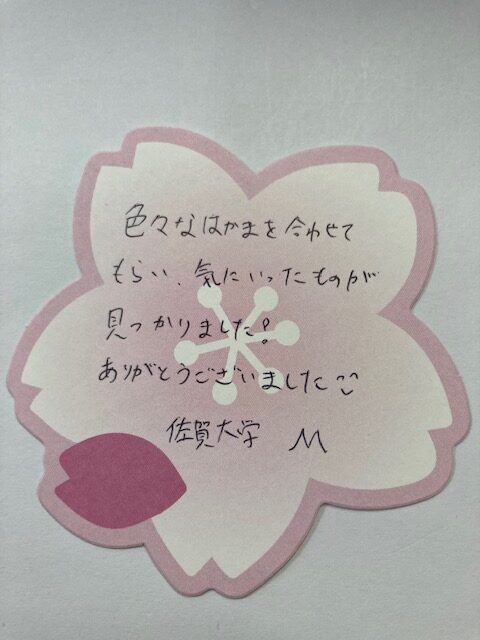 色々なはかまを合わせて
もらい、気にいったものが
見つかりました!
ありがとうございました
佐賀大学 M